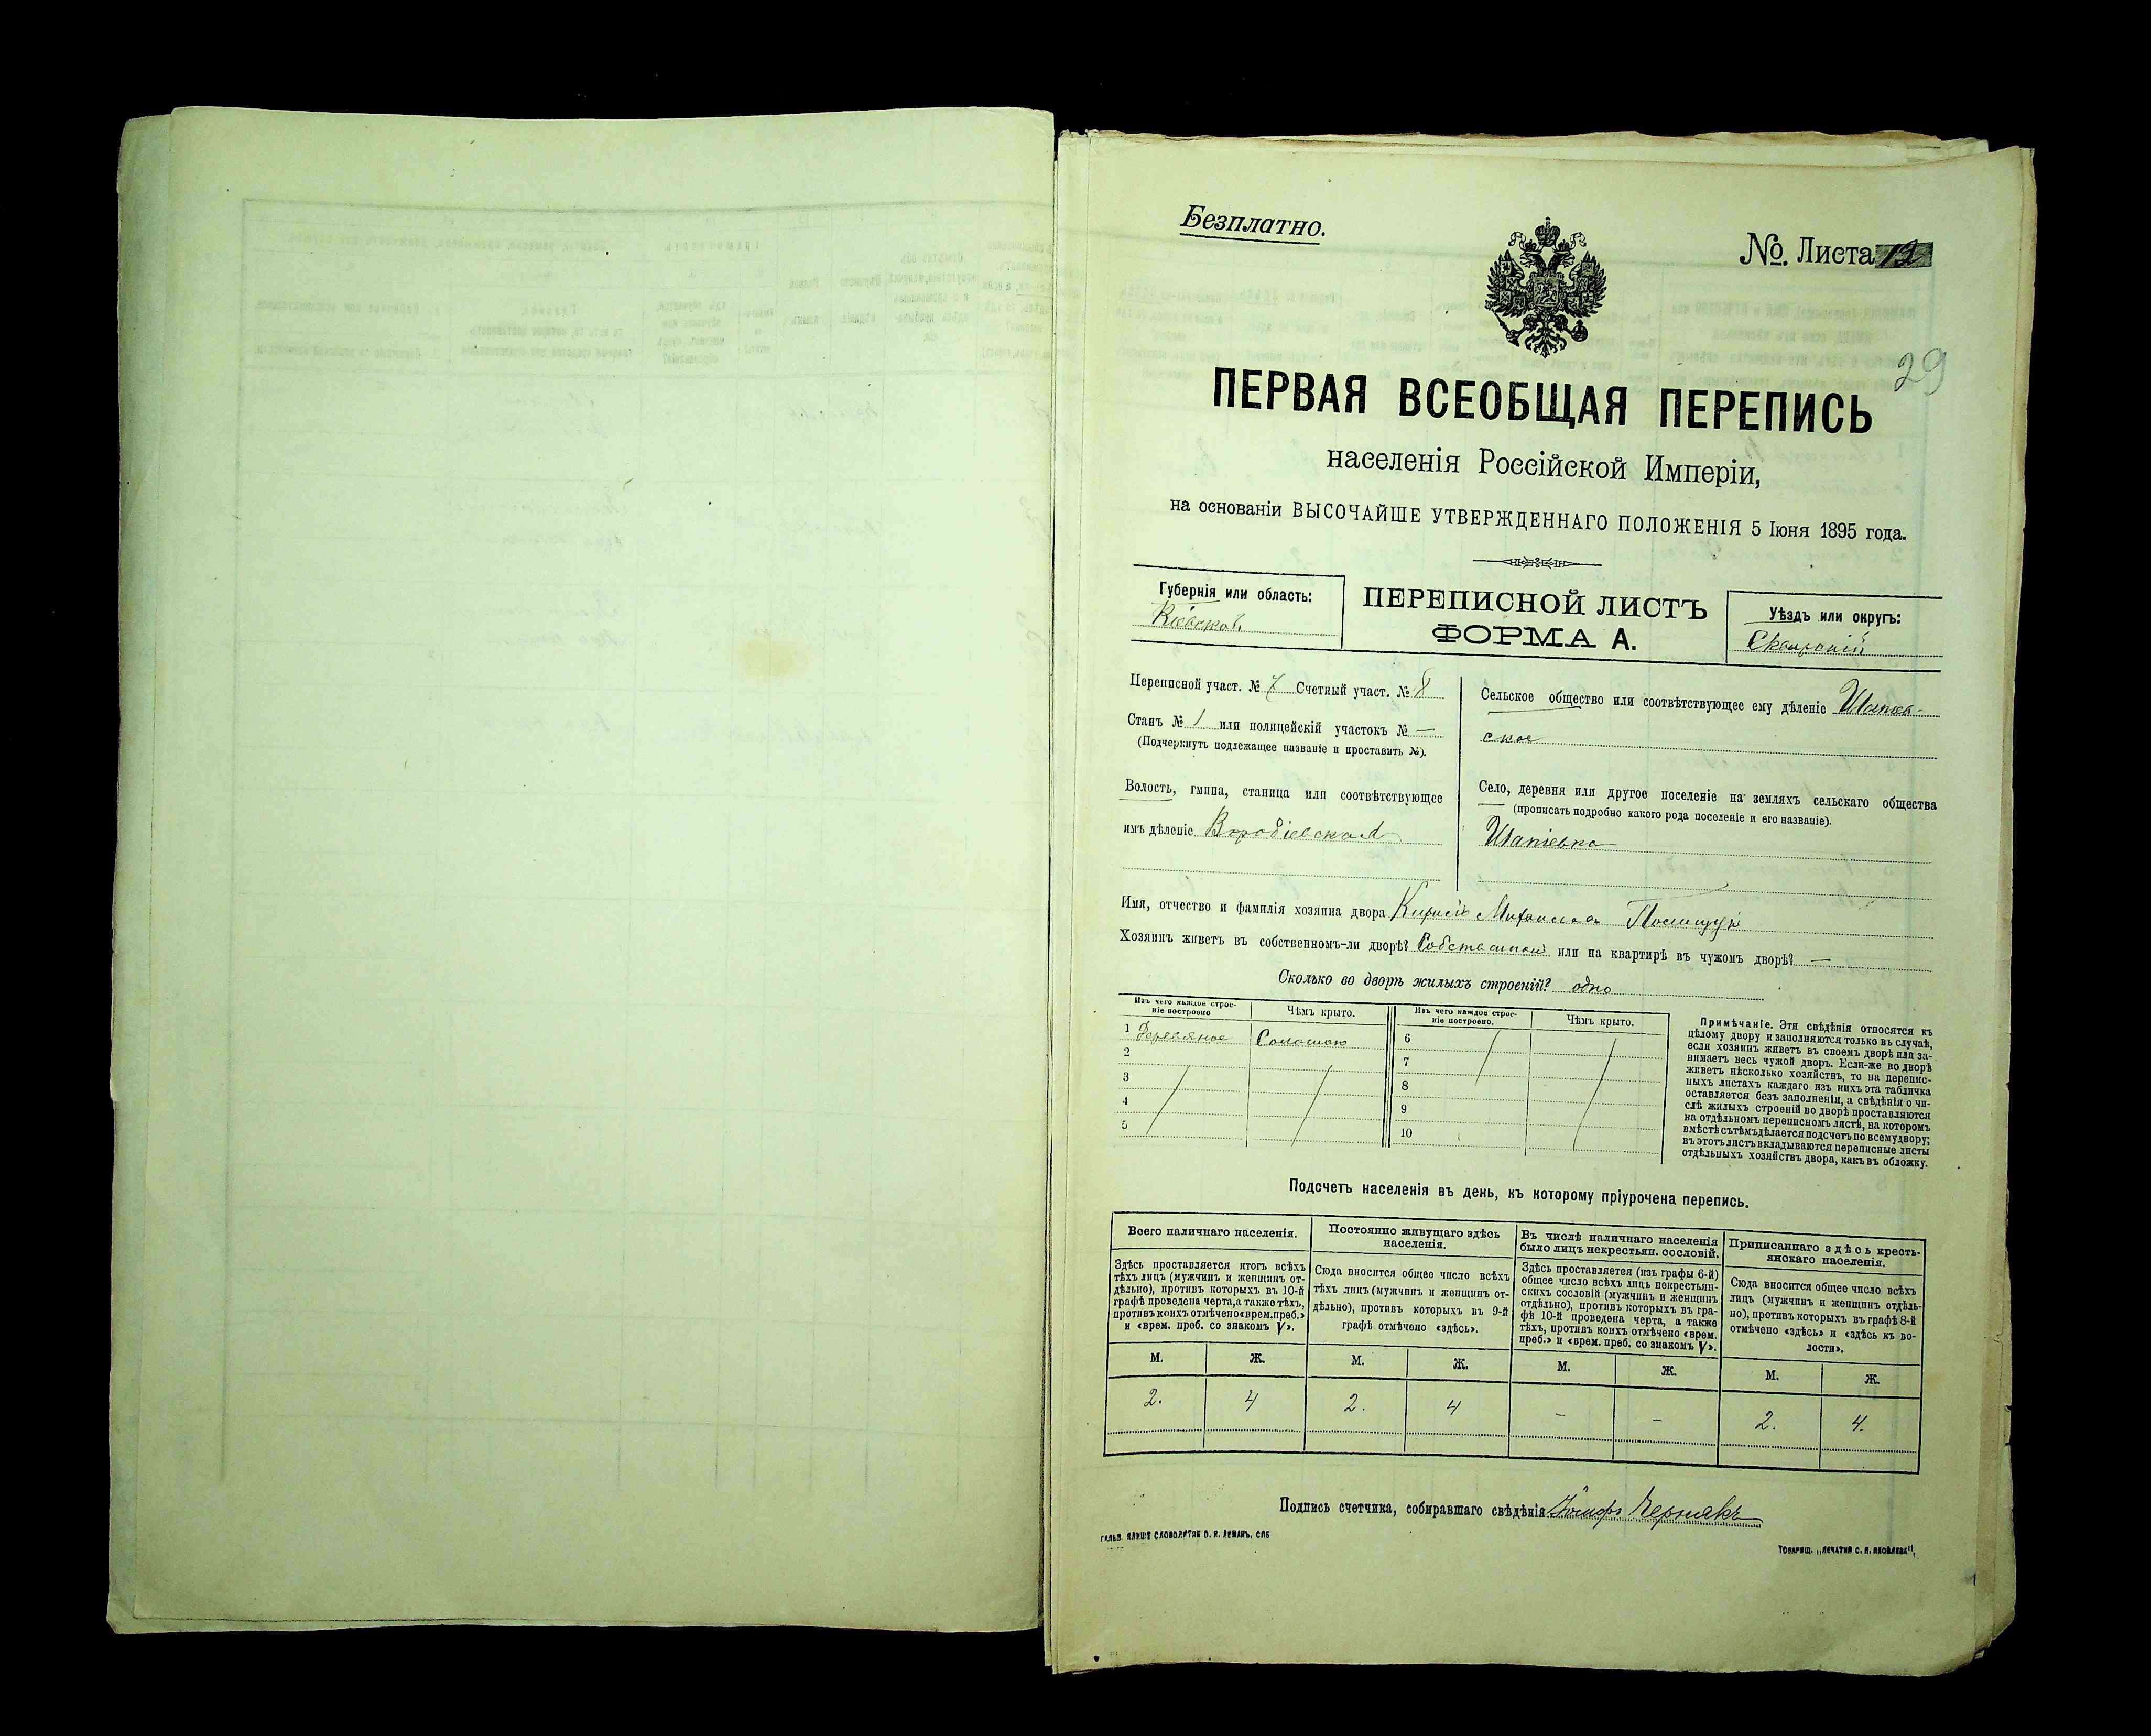 Безплатно.
№. Листа 12
29
ПЕРВАЯ ВСЕОБЩАЯ ПЕРЕПИСЬ
населенія Россійской Имперіи,
на основаніи ВЫСОЧАЙШЕ УТВЕРЖДЕННАГО ПОЛОЖЕНІЯ 5 Іюня 1895 года.
Губернія или область:
Кіевская
ПЕРЕПИСНОЙ ЛИСТЪ
ФОРМА А.
Уѣздъ или округъ:
Сквирскій
Переписной участ. № 7 Счетный участ. № 8
Станъ № 1 или полицейскій участокъ № —
(Подчеркнуть подлежащее названіе и проставить №).
Волость, гмина, станица или соотвѣтствующее
имъ дѣленіе Воробіевская
Сельское общество или соотвѣтствующее ему дѣленіе
ское
Село, деревня или другое поселеніе на земляхъ сельскаго общества
(прописать подробно какого рода поселеніе и его названіе).
Шапіевка
Имя, отчество и фамилія хозяина двора Михаиловъ Полищукъ
Хозяинъ живетъ въ собственномъ-ли дворѣ? или на квартирѣ въ чужомъ дворѣ? —
Сколько во дворѣ жилыхъ строеній? одно
Изъ чего каждое строе-
ніе построено
Чѣмъ крыто.
Изъ чего каждое строе-
ніе построено.
Чѣмъ крыто.
1 Деревяное Соломою
2
3
4
5
6
7
8
9
10
Примѣчаніе. Эти свѣдѣнія относятся къ
цѣлому двору и заполняются только въ случаѣ,
если хозяинъ живетъ въ своемъ дворѣ или за-
нимаетъ весь чужой дворъ. Если-же во дворѣ
живетъ нѣсколько хозяйствъ, то на перепис-
ныхъ листахъ каждаго изъ нихъ эта табличка
оставляется безъ заполненія, а свѣдѣнія о чи-
слѣ жилыхъ строеній во дворѣ проставляются
на отдѣльномъ переписномъ листѣ, на которомъ
вмѣстѣ съ тѣмъ дѣлается подсчетъ по всему двору;
въ этотъ листъ вкладываются переписные листы
отдѣльныхъ хозяйствъ двора, какъ въ обложку.
Подсчетъ населенія въ день, къ которому пріурочена перепись.
Всего наличнаго населенія.
Здѣсь проставляется итогъ всѣхъ
тѣхъ лицъ (мужчинъ и женщинъ от-
дѣльно), противъ которыхъ въ 10-й
графѣ проведена черта, а также тѣхъ,
противъ коихъ отмѣчено «врем. преб.»
и «врем. преб. со знакомъ V».
Постоянно живущаго здѣсь
населенія.
Сюда вносится общее число всѣхъ
тѣхъ лицъ (мужчинъ и женщинъ от-
дѣльно), противъ которыхъ въ 9-й
графѣ отмѣчено «здѣсь».
Въ числѣ наличнаго населенія
было лицъ некрестьян. сословій.
Здѣсь проставляется (изъ графы 6-й)
общее число всѣхъ лицъ некрестьян-
скихъ сословій (мужчинъ и женщинъ
отдѣльно), противъ которыхъ въ гра-
фѣ 10-й проведена черта, а также
тѣхъ, противъ коихъ отмѣчено «врем.
преб.» и «врем. преб. со знакомъ V».
Приписаннаго здѣсь кресть-
янскаго населенія.
Сюда вносится общее число всѣхъ
лицъ (мужчинъ и женщинъ отдѣль-
но), противъ которыхъ въ графѣ 8-й
отмѣчено «здѣсь» и «здѣсь къ во-
лости».
М. Ж. М. Ж. М. Ж. М. Ж.
2. 4 2. 4 – – 2. 4.
Подпись счетчика, собиравшаго свѣдѣнія
ГАЛЬВ. КЛИШЕ СЛОВОЛИТНИ О. И. ЛЕМАНЪ, СПБ
ТОВАРИЩ. „ПЕЧАТНЯ С. П. ЯКОВЛЕВА",